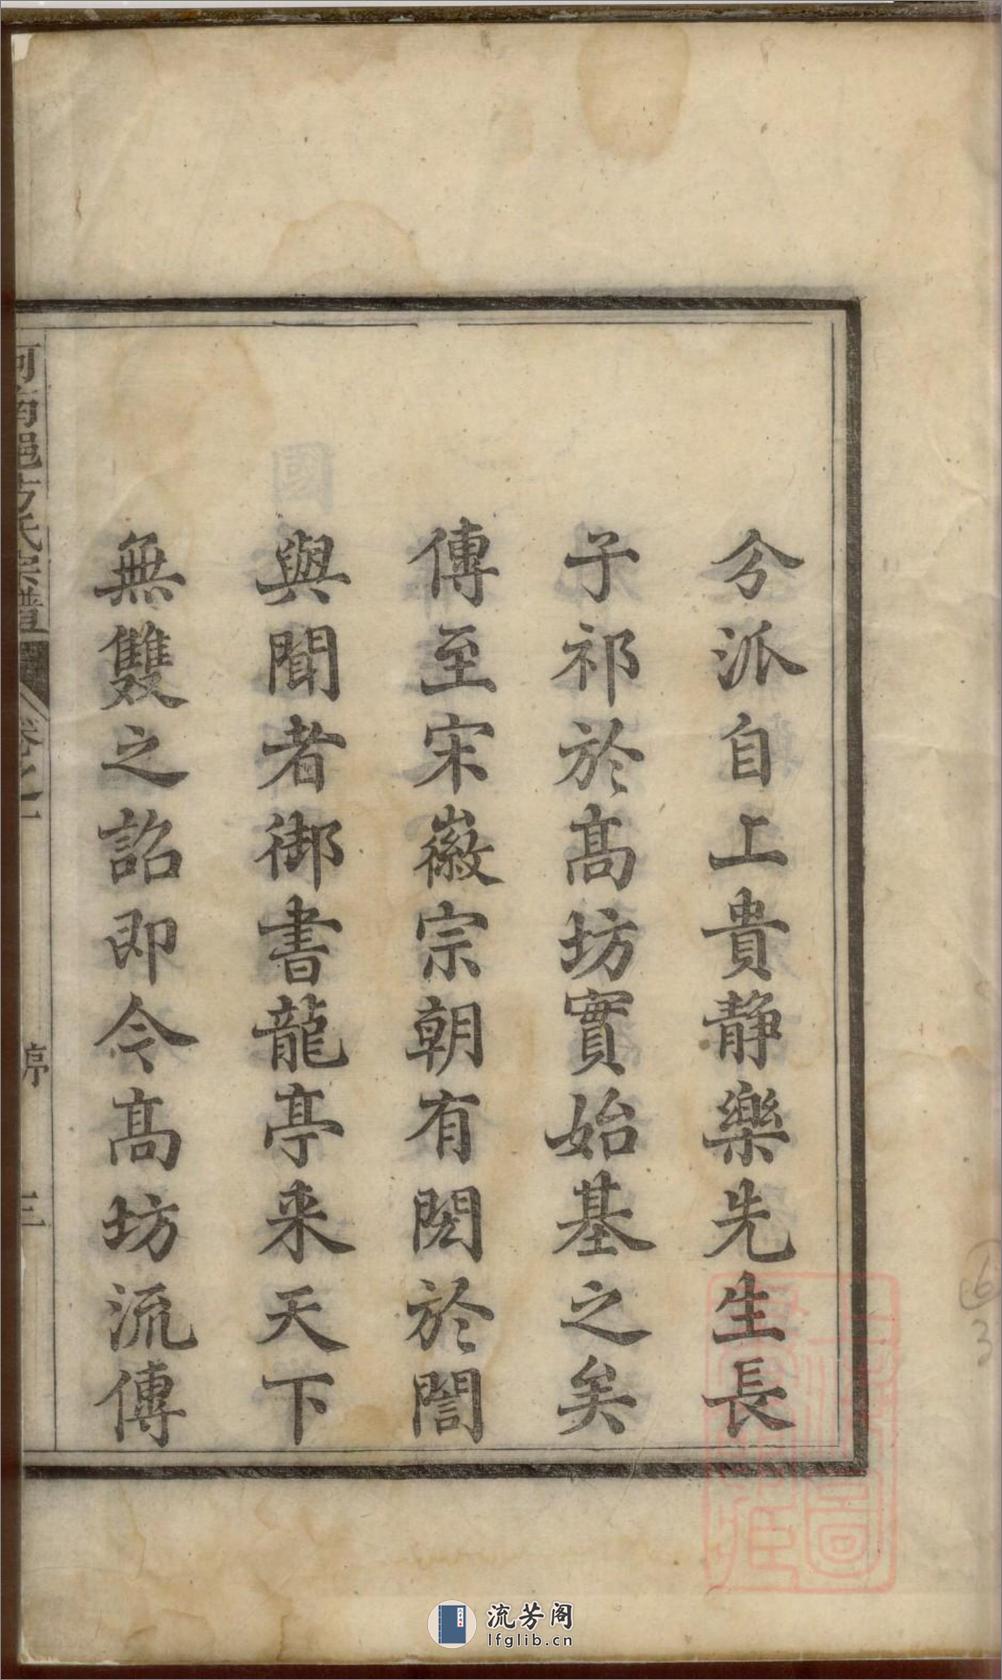 分派自上貴静樂先生長
子祁於髙坊實始基之矣
傳至宋徽宗朝有閎於誾
與聞者御書龍亭来天下
無雙之詔即今髙坊流傳
河南邑方氏宗譜
卷之一
序
三
國
63
流芳阁
lfglib.cn